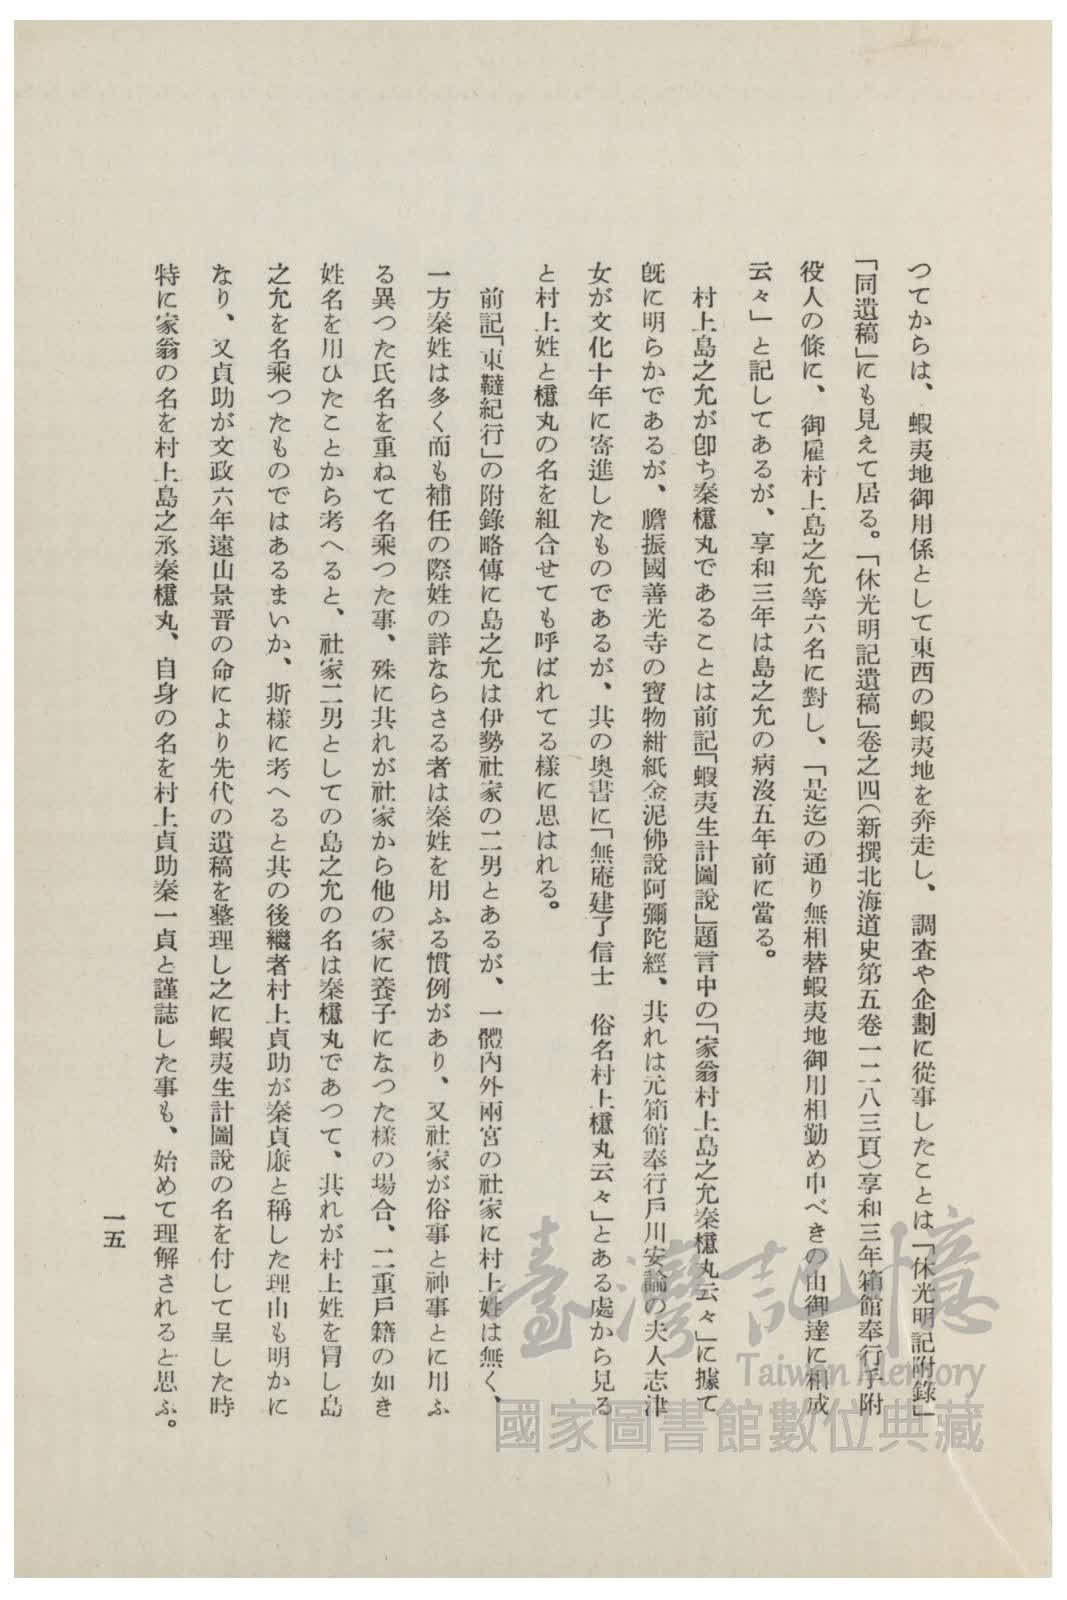 つてからは、蝦夷地御用係として東西の蝦夷地を奔走し、調査や企劃に從事したことは「休光明記附錄」
「同遺稿」にも見えて居る。「休光明記遺稿」卷之四(新撰北海道史第五卷一二八三頁)享和三年箱館奉行手附
役人の條に、御雇村上島之允等六名に對し、「是迄の通り無相替蝦夷地御用相勤め申べきの由御達に相成
云々」と記してあるが、享和三年は島之允の病沒五年前に當る。
村上島之允が卽ち秦檍丸であることは前記「蝦夷生計圖說」題言中の「家翁村上島之允秦檍丸云々」に據て
旣に明らかであるが、膽振國善光寺の寶物紺紙金泥佛說阿彌陀經、其れは元箱館奉行戶川安論の夫人志津
女が文化十年に寄進したものであるが、其の奥書に「無庵建了信士　俗名村上檍丸云々」とある處から見る
と村上姓と檍丸の名を組合せても呼ばれてる樣に思はれる。
前記「東韃紀行」の附錄略傳に島之允は伊勢社家の二男とあるが、一體內外兩宮の社家に村上姓は無く、
一方秦姓は多く而も補任の際姓の詳ならさる者は秦姓を用ふる慣例があり、又社家が俗事と神事とに用ふ
る異つた氏名を重ねて名乘つた事、殊に其れが社家から他の家に養子になつた樣の場合、二重戶籍の如き
姓名を用ひたことから考へると、社家二男としての島之允の名は秦檍丸であつて、其れが村上姓を冒し島
之允を名乘つたものではあるまいか、斯樣に考へると其の後繼者村上貞助が秦貞廉と稱した理由も明かに
なり、又貞助が文政六年遠山景晋の命により先代の遺稿を整理し之に蝦夷生計圖說の名を付して呈した時
特に家翁の名を村上島之丞秦檍丸、自身の名を村上貞助秦一貞と謹誌した事も、始めて理解されると思ふ。
一五
臺灣記憶
Taiwan Memory
國家圖書館數位典藏